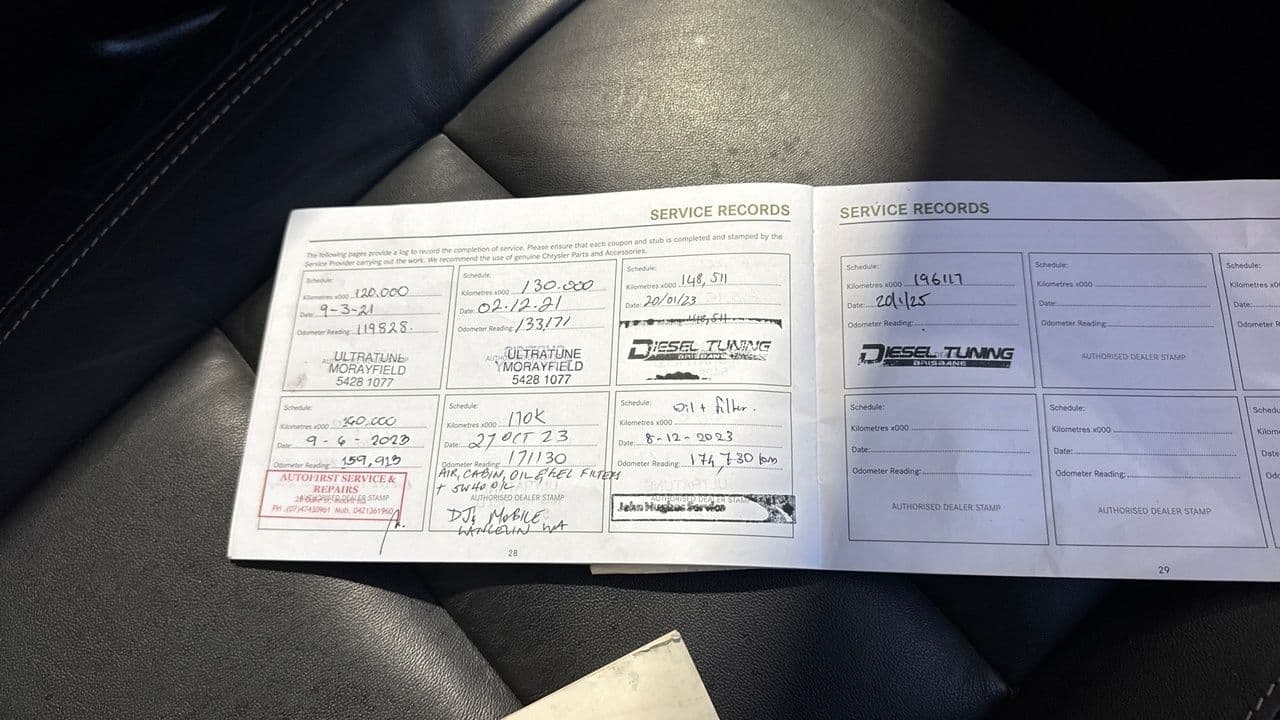 SERVICE RECORDS
The following pages provide a log to record the completion of service. Please ensure that each coupon and stub is completed and stamped by the
Service Provider carrying out the work. We recommend the use of genuine Chrysler Parts and Accessories.
Schedule:
Kilometres x000 120,000
Date: 9-3-21
Odometer Reading: 119828.
ULTRATUNE
MORAYFIELD
5428 1077
Schedule:
Kilometres x000 130.000
Date: 02.12.21
Odometer Reading: 133171
ULTRATUNE
MORAYFIELD
5428 1077
Schedule:
Kilometres x000 148,511
Date: 20/01/23
148,511
DIESEL TUNING
BRISBANE
Schedule:
Kilometres x000 160,000
Date: 9-6-2023
Odometer Reading: 159,913
AUTOFIRST SERVICE &
REPAIRS
AUTHORISED DEALER STAMP
PH :(07)47430961 Mob. 0421361960
Schedule:
Kilometres x000 170K
Date: 27 OCT 23
Odometer Reading: 171130
AIR, CABIN, OIL & FUEL FILTERS
+ 5W40 OIL
AUTHORISED DEALER STAMP
DJs MOBILE
LANCELIN WA
Schedule: Oil + filter.
Kilometres x000
Date: 8-12-2023
Odometer Reading: 174,730 km
AUTHORISED DEALER STAMP
John Hughes Service
28
SERVICE RECORDS
Schedule:
Kilometres x000 196117
Date: 20/1/25
Odometer Reading:
DIESEL TUNING
BRISBANE
Schedule:
Kilometres x000
Date:
Odometer Reading:
AUTHORISED DEALER STAMP
Schedule:
Kilometres x0
Date:
Odometer R
Schedule:
Kilometres x000
Date:
Odometer Reading:
AUTHORISED DEALER STAMP
Schedule:
Kilometres x000
Date:
Odometer Reading:
AUTHORISED DEALER STAMP
Sched
Kilom
Date
Odo
29